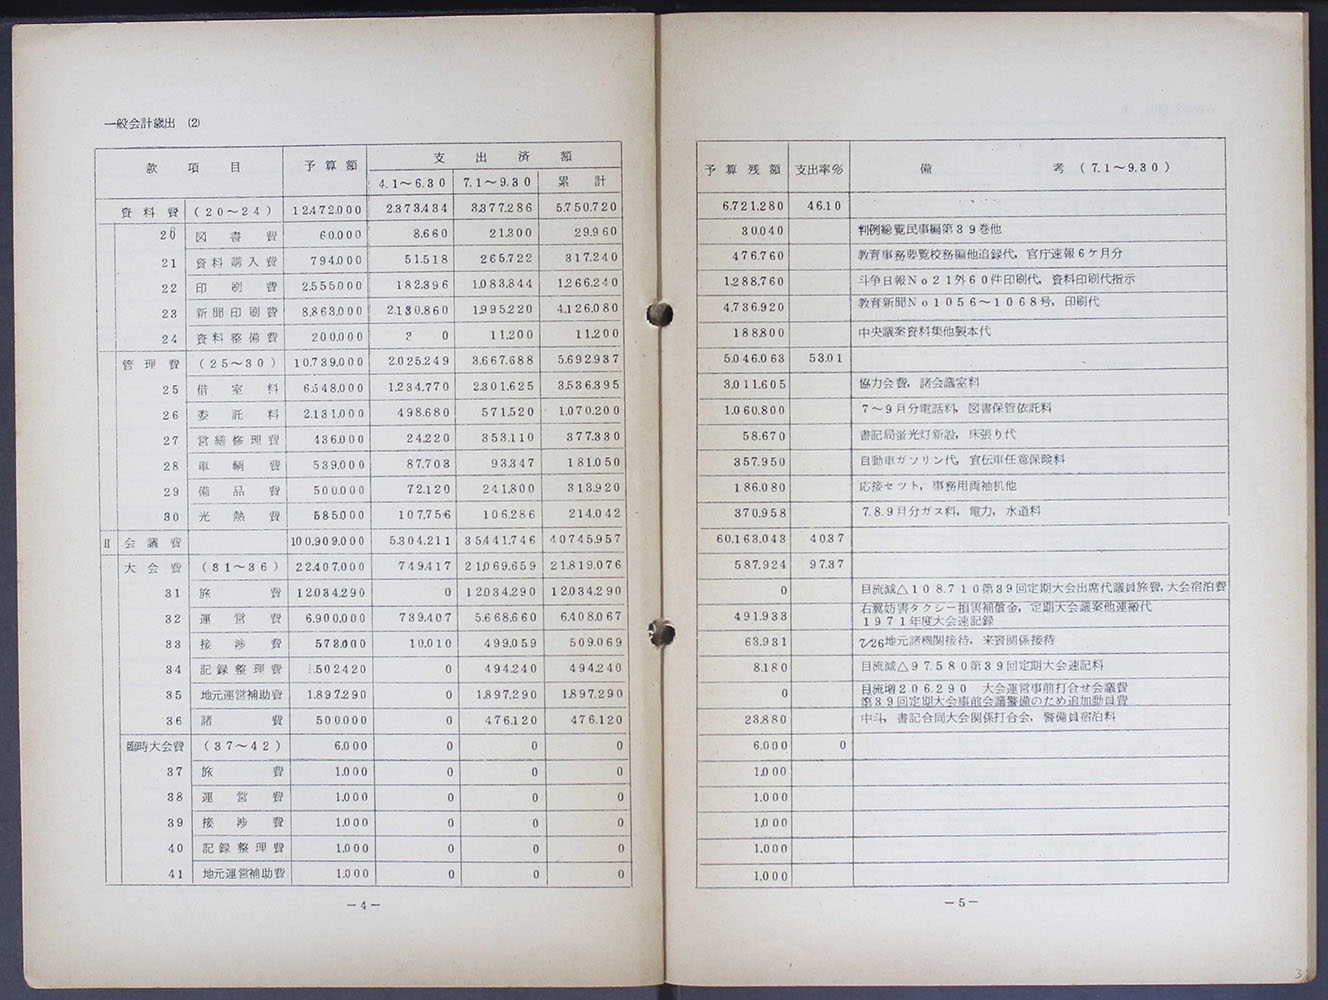 一般会計歳出 (2)
款 項 目 予算額 支出済額
4.1～6.30 7.1～9.30 累計
資料費 (20～24) 12.472.000 2.373.434 3.377.286 5.750.720
20 図書費 60.000 8.660 21.300 29.960
21 資料購入費 794.000 51.518 265.722 317.240
22 印刷費 2.555.000 182.396 1.083.844 1.266.240
23 新聞印刷費 8.863.000 2.130.860 1.995.220 4.126.080
24 資料整備費 200.000 0 11.200 11.200
管理費 (25～30) 10.739.000 2.025.249 3.667.688 5.692.937
25 借室料 6.548.000 1.234.770 2.301.625 3.536.395
26 委託料 2.131.000 498.680 571.520 1.070.200
27 営繕修理費 436.000 24.220 353.110 377.330
28 車輌費 539.000 87.703 93.347 181.050
29 備品費 500.000 72.120 241.800 313.920
30 光熱費 585.000 107.756 106.286 214.042
Ⅱ 会議費 100.909.000 5.304.211 35.441.746 40.745.957
大会費 (31～36) 22.407.000 749.417 21.069.659 21.819.076
31 旅費 12.034.290 0 12.034.290 12.034.290
32 運営費 6.900.000 739.407 5.668.660 6.408.067
33 接渉費 573.000 10.010 499.059 509.069
34 記録整理費 502.420 0 494.240 494.240
35 地元運営補助費 1.897.290 0 1.897.290 1.897.290
36 諸費 500.000 0 476.120 476.120
臨時大会費 (37～42) 6.000 0 0 0
37 旅費 1.000 0 0 0
38 運営費 1.000 0 0 0
39 接渉費 1.000 0 0 0
40 記録整理費 1.000 0 0 0
41 地元運営補助費 1.000 0 0 0
－4－
予算残額 支出率% 備考 (7.1～9.30)
6.721.280 46.10
30.040 判例総覧民事編第39巻他
476.760 教育事務要覧校務編他追録代，官庁速報6ケ月分
1.288.760 斗争日報No21外60件印刷代，資料印刷代指示
4.736.920 教育新聞No1056～1068号，印刷代
188.800 中央議案資料集他製本代
5.046.063 53.01
3.011.605 協力会費，諸会議室料
1.060.800 7～9月分電話料，図書保管依託料
58.670 書記局蛍光灯新設，床張り代
357.950 自動車ガソリン代，宣伝車任意保険料
186.080 応接セット，事務用両袖机他
370.958 7.8.9月分ガス料，電力，水道料
60.163.043 40.37
587.924 97.37
0 目流減△108.710第39回定期大会出席代議員旅費，大会宿泊費
491.933 右翼妨害タクシー損害補償金，定期大会議案他運搬代
1971年度大会速記録
63.931 7/26地元諸機関接待，来賓関係接待
8.180 目流減△97.580第39回定期大会速記料
0 目流増206.290 大会運営事前打合せ会議費
第39回定期大会事前会議警備のため追加動員費
23.880 中斗，書記合同大会関係打合会，警備員宿泊料
6.000 0
1.000
1.000
1.000
1.000
1.000
－5－
3